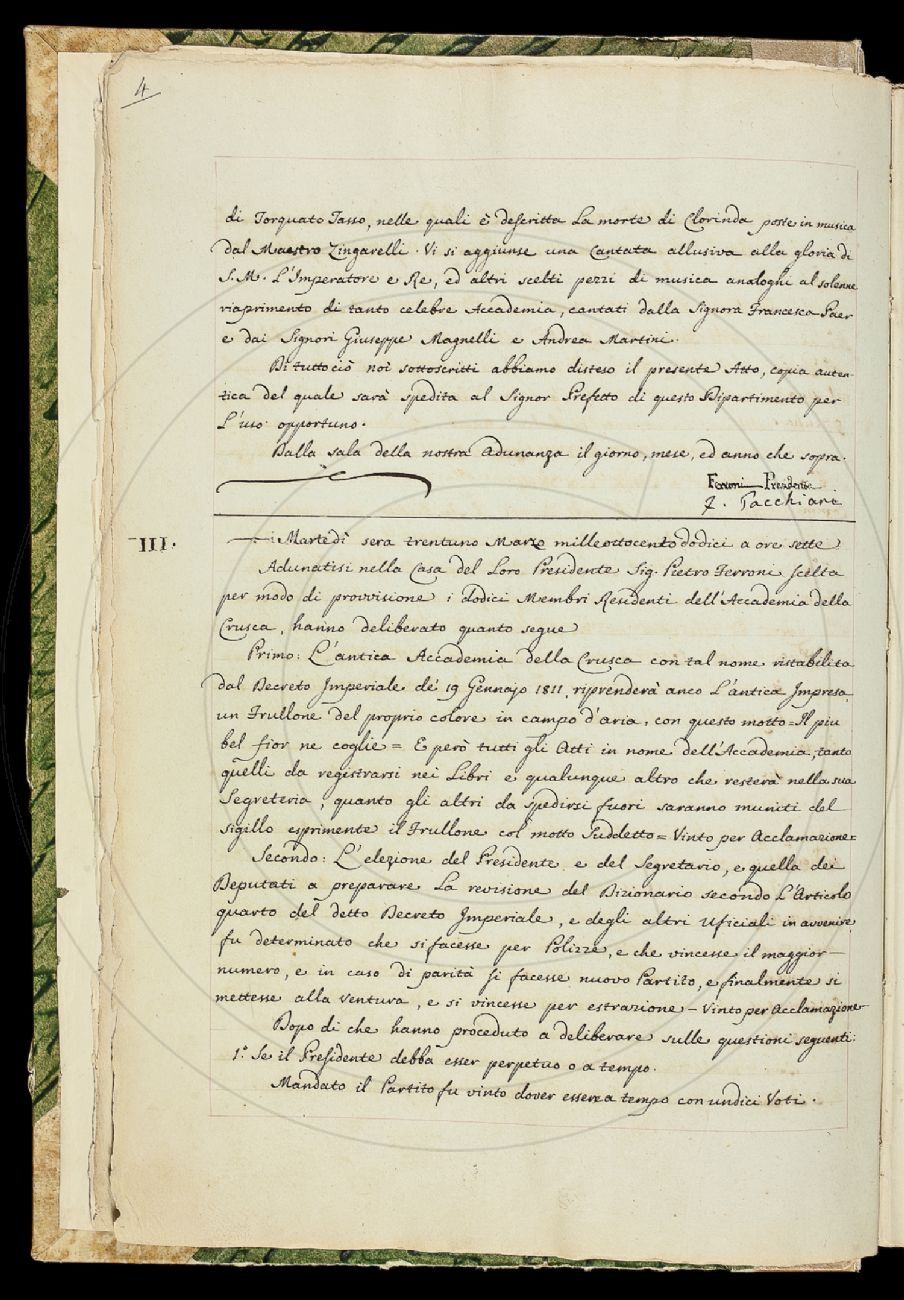 4
di Torquato Tasso, nelle quali è descritta La morte di Clorinda poste in musica
dal Maestro Zingarelli. Vi si aggiunse una Cantata allusiva alla gloria di
S. M. L'Imperatore e Re, ed altri scelti pezzi di musica analoghi al solenne
riaprimento di tanto celebre Accademia, cantati dalla Signora Francesca Paer
e dai Signori Giuseppe Magnelli e Andrea Martini.
Di tutto ciò noi sottoscritti abbiamo disteso il presente Atto, copia auten-
tica del quale sarà spedita al Signor Prefetto di questo Dipartimento per
L'uso opportuno.
Dalla sala della nostra Adunanza il giorno, mese, ed anno che sopra.
Ferroni Presidente
F. Pacchiani
III.
Martedì sera trentuno Marzo milleottocentododici a ore sette
Adunatisi nella Casa del Loro Presidente Sig. Pietro Ferroni scelta
per modo di provvisione i dodici Membri Residenti dell'Accademia della
Crusca, hanno deliberato quanto segue
Primo: L'antica Accademia della Crusca con tal nome ristabilita
dal Decreto Imperiale de' 19 Gennajo 1811, riprenderà anco L'antica Impresa
un Frullone del proprio colore in campo d'aria, con questo motto = Il più
bel fior ne coglie = E però tutti gli Atti in nome dell'Accademia, tanto
quelli da registrarsi nei Libri e qualunque altro che resterà nella sua
Segreteria, quanto gli altri da spedirsi fuori saranno muniti del
sigillo esprimente il Frullone col motto Suddetto = Vinto per Acclamazione =
Secondo: L'elezione del Presidente e del Segretario, e quella dei
Deputati a preparare La revisione del Dizionario secondo L'Articolo
quarto del detto Decreto Imperiale, e degli altri Uficiali in avvenire
fu determinato che si facesse per Polizze, e che vincesse il maggior
numero, e in caso di parità si facesse nuovo Partito, e finalmente si
mettesse alla ventura, e si vincesse per estrazione - Vinto per Acclamazione
Dopo di che hanno proceduto a deliberare sulle questioni seguenti:
1.° Se il Presidente debba esser perpetuo o a tempo.
Mandato il Partito fu vinto dover essere a tempo con undici Voti.